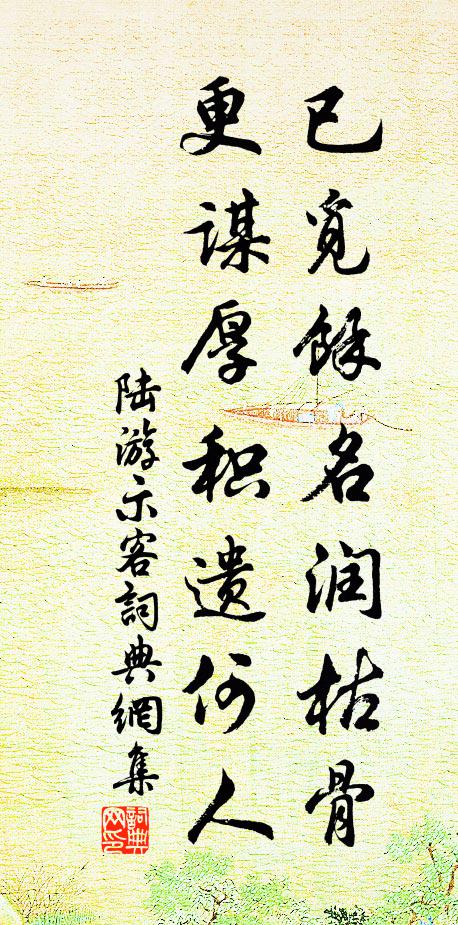 已觅餘名润枯骨
更谋厚积遗何人
陆游示客詞典網集
詞典网印